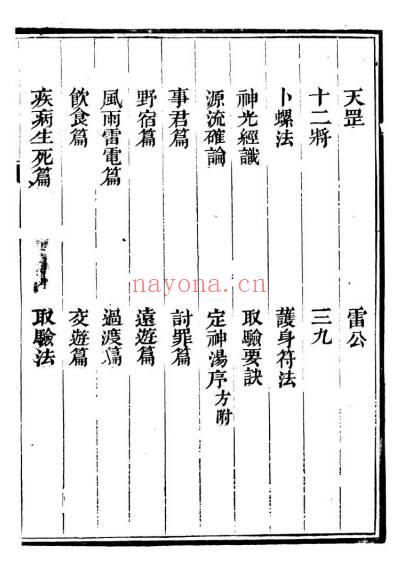 天罡　雷公
十二將　三九
卜螺法　護身符法
神光經讖　取驗要訣
源流確論　定神湯序方附
事君篇　討罪篇
野宿篇　遠遊篇
風雨雷電篇　過渡篇
飲食篇　交遊篇
疾病生死篇　取驗法
nayona.cn